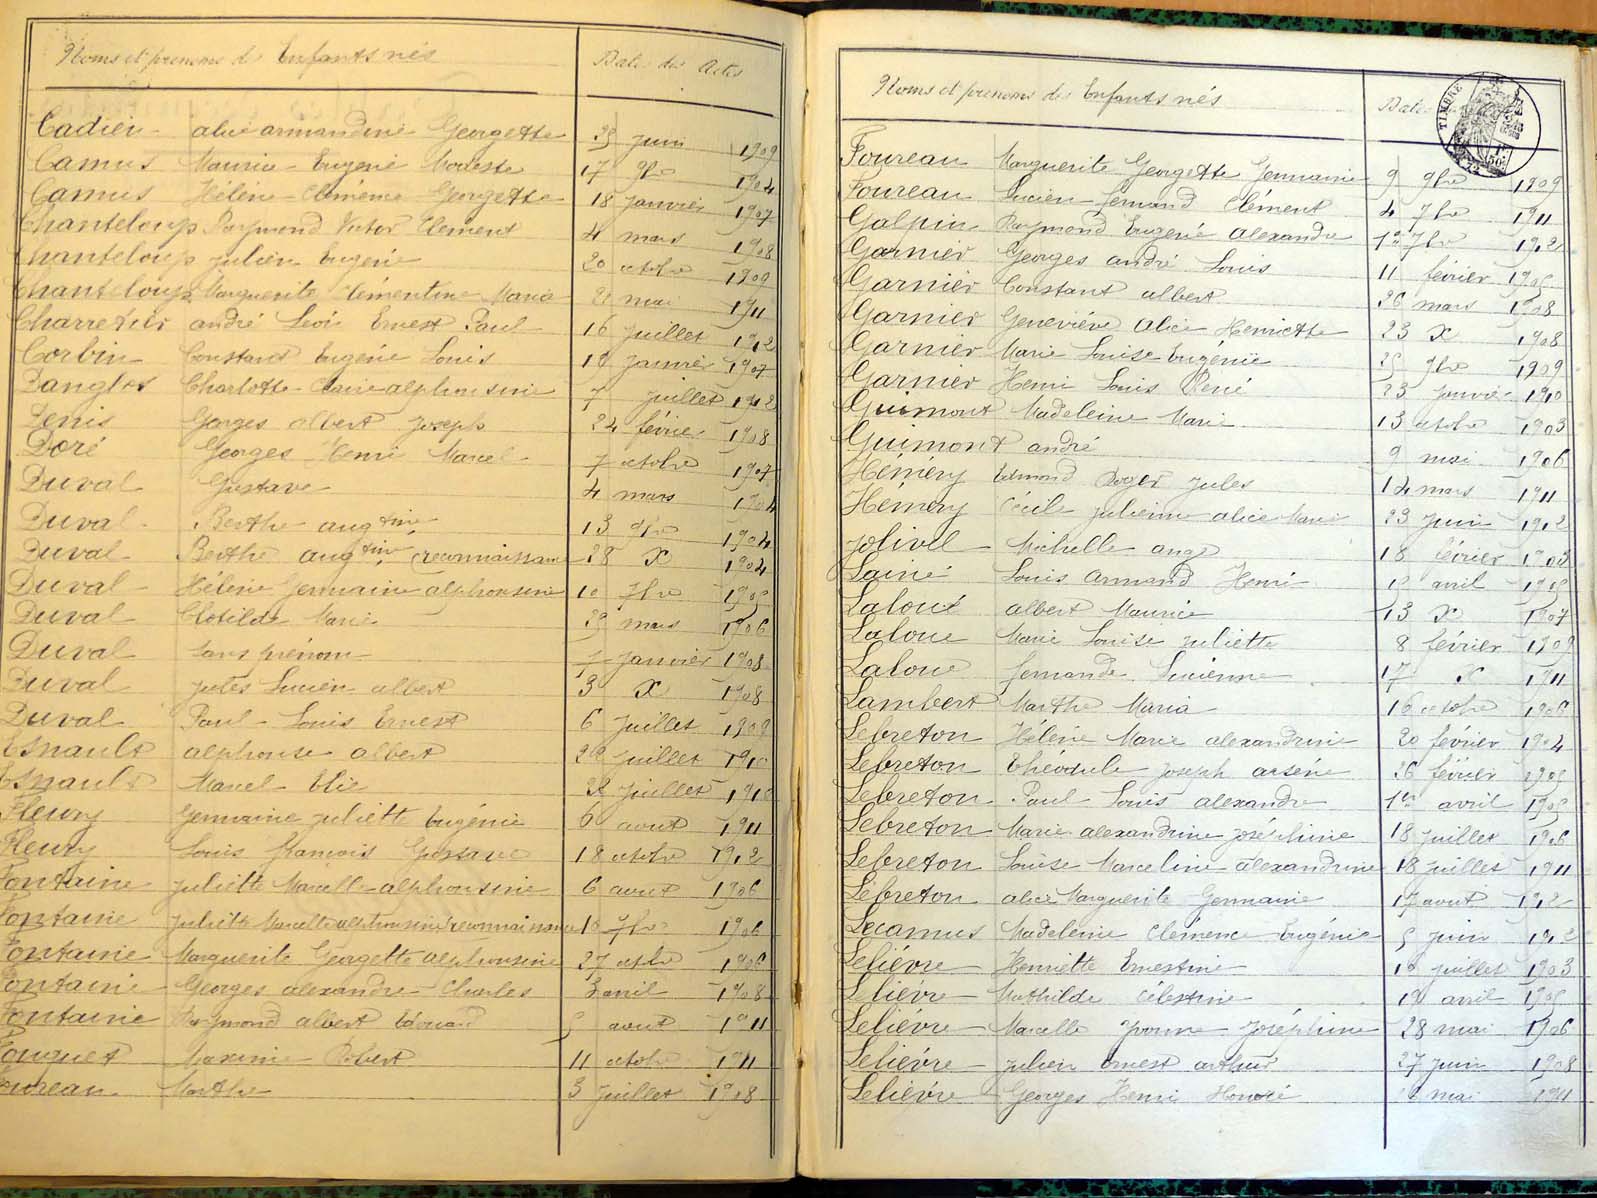 Noms et prénoms des Enfants nés Dates des Actes
Cadieu alice armandine Georgette 25 juin 1909
Camus Maurice Eugène Modeste 17 9bre 1904
Camus Hélène Clémence Georgette 18 janvier 1907
Chanteloup Raymond Victor Clément 4 mars 1908
Chanteloup julien Eugène 20 octobre 1909
Chanteloup Marguerite Clémentine Maria mai 1911
Charretier andré Léon Ernest Paul 16 juillet 1912
Corbin Constant Eugène Louis 18 janvier 1907
Danglos Charlotte Claire alphonsine 7 juillet 1912
Denis Georges albert joseph 24 février 1908
Doré Georges Henri Marcel 7 octobre 1907
Duval Gustave 4 mars 1904
Duval Berthe augtine 13 9bre 1904
Duval Berthe augtine (reconnaissance 28 X 1904
Duval Hélène Germaine alphonsine 10 7bre 1905
Duval Clotilde Marie 29 mars 1906
Duval sans prénom janvier 1908
Duval jules Lucien albert 3 X 1908
Duval Paul Louis Ernest 6 juillet 1909
Esnault alphonse albert 22 juillet 1910
Esnault Marcel Elie 22 juillet 1910
Fleury Germaine juliette Eugénie 6 aout 1911
Fleury Louis François Gustave 18 octobre 1912
Fontaine juliette Marcelle alphonsine 6 aout 1906
Fontaine juliette Marcelle alphonsine (reconnaissance 10 7bre 1906
Fontaine Marguerite Georgette alphonsine 27 octbre 1906
Fontaine Georges alexandre Charles 3 avril 1908
Fontaine Raymond albert Edouard 5 aout 1911
Fouquet Maxime Robert 11 octobre 1911
Foureau Marthe 3 juillet 1908
Noms et prénoms des Enfants nés Dates
TIMBRE
Foureau Marguerite Georgette Germaine 9 9bre 1909
Foureau Lucien fernand Clément 4 7bre 1911
Galpin Raymond Eugène alexandre 1er 7bre 1912
Garnier Georges andré Louis 11 février 1905
Garnier Constant albert 26 mars 1908
Garnier Geneviève Alice Henriette 23 X 1908
Garnier Marie Louise Eugénie 25 9bre 1909
Garnier Henri Louis René 23 janvier 1910
Guimont Madeleine Marie 13 octobre 1903
Guimont andré 9 mai 1906
Hémery Edmond Roger jules 14 mars 1911
Hémery Cécile julienne alice Marie 23 juin 1912
jolivel Michelle ange 18 février 1903
Lainé Louis armand Henri avril 1905
Laloue albert Maurice 13 X 1907
Laloue Marie Louise juliette 8 février 1909
Laloue fernande Lucienne 17 X 1911
Lambert Marthe Maria 16 octobre
Lebreton Hélène Marie alexandrine 20 février 1904
Lebreton Théodule joseph arsène 26 février 1905
Lebreton Paul Louis alexandre 1er avril 1905
Lebreton Marie alexandrine joséphine 18 juillet 1906
Lebreton Louise Marceline alexandrine 18 juillet 1911
Lebreton alice Marguerite Germaine 17 aout 1912
Lecamus Madeleine Clémence Eugénie 5 juin
Lelièvre Henriette Ernestine 10 juillet 1903
Lelièvre Mathilde Célestine 19 avril 1905
Lelièvre Marcelle Yvonne joséphine 28 mai 1906
Lelièvre julien Ernest arthur 27 juin 1908
Lelièvre Georges Henri Honoré mai 1911